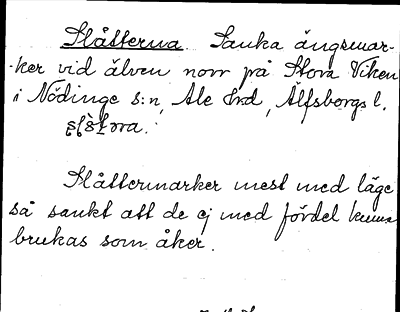 Slåtterna. Sanka ängsmar-
-ker vid älven norr på Stora Viken
i Nödinge s:n, Ale hrd, Älfsborgs l.
Slåttermarker mest med läge
så sankt att de ej med fördel kunna
brukas som åker.